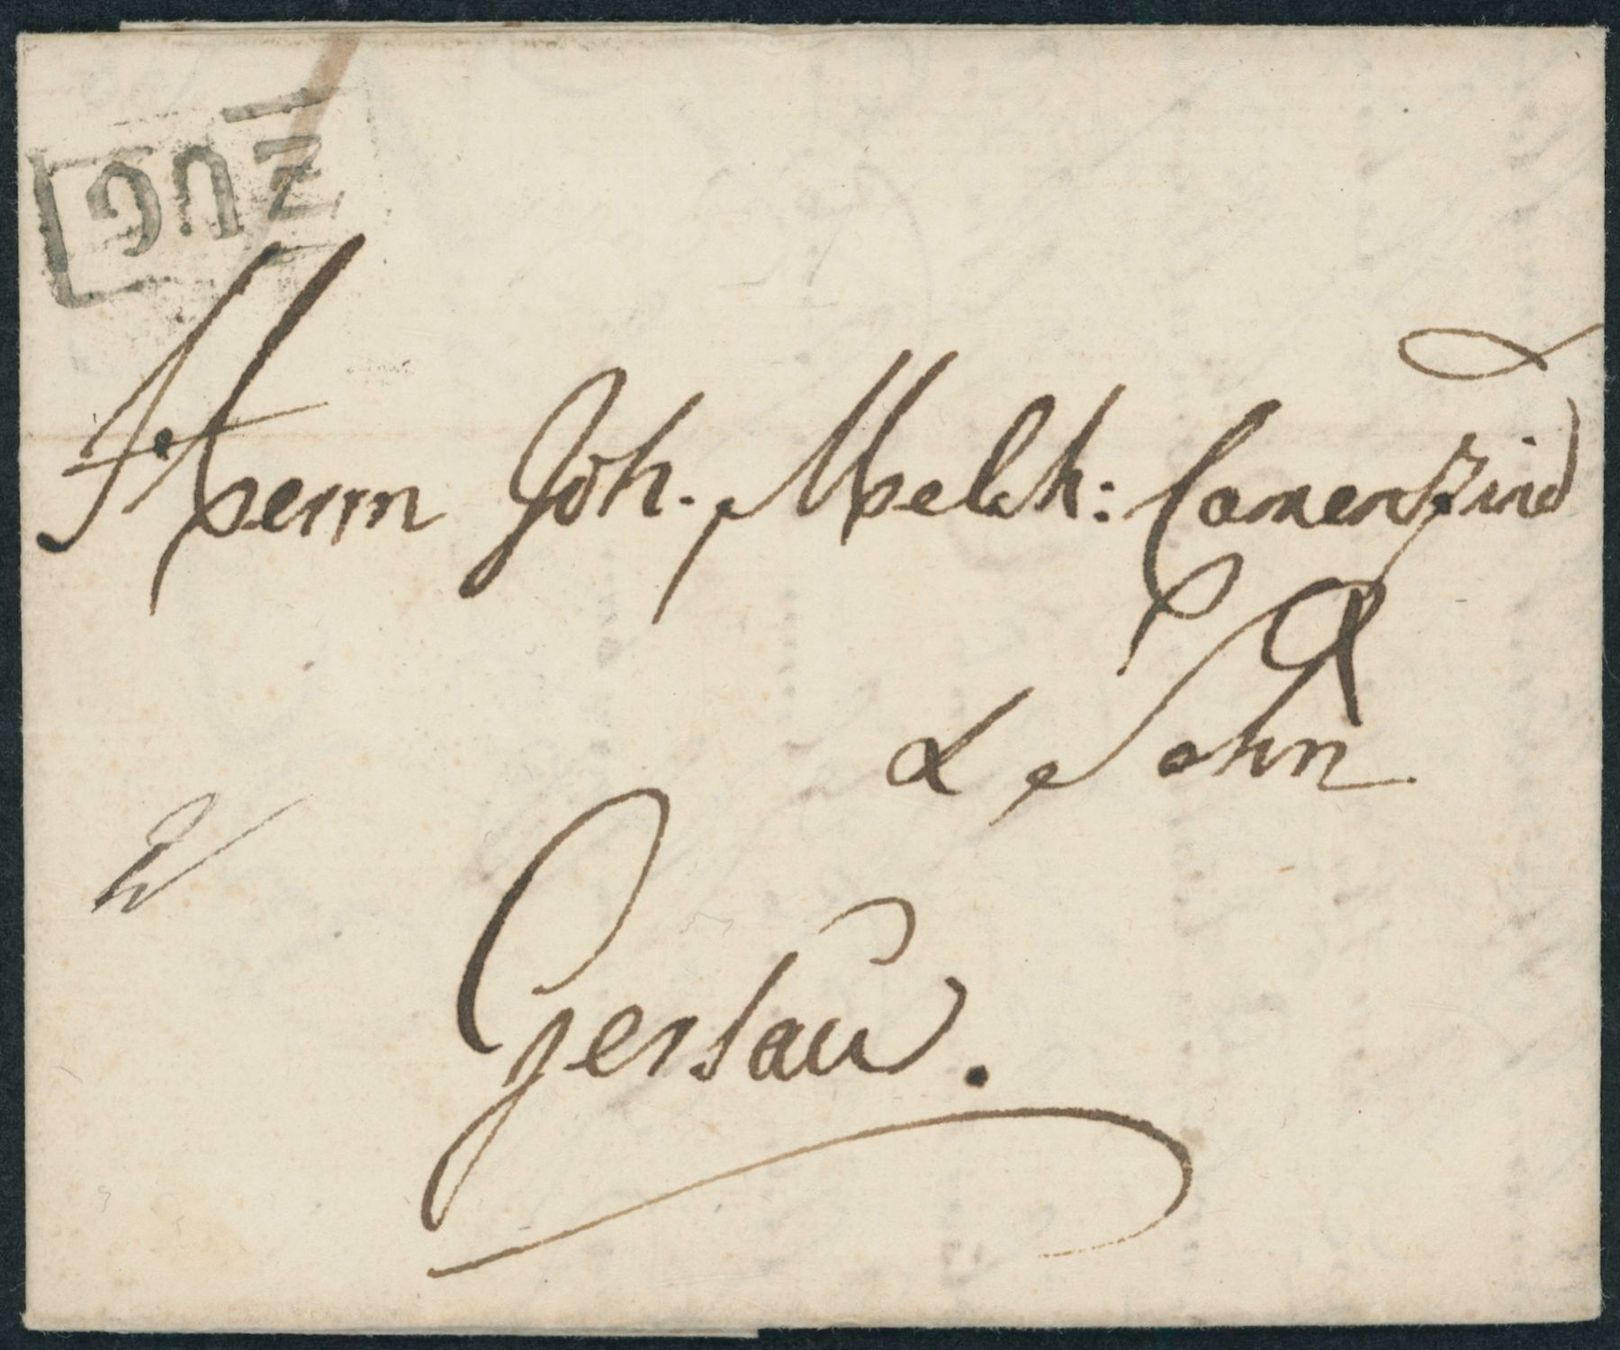 ZUG
Herrn Joh. Melch: Camenzind
& Sohn
Gersau.